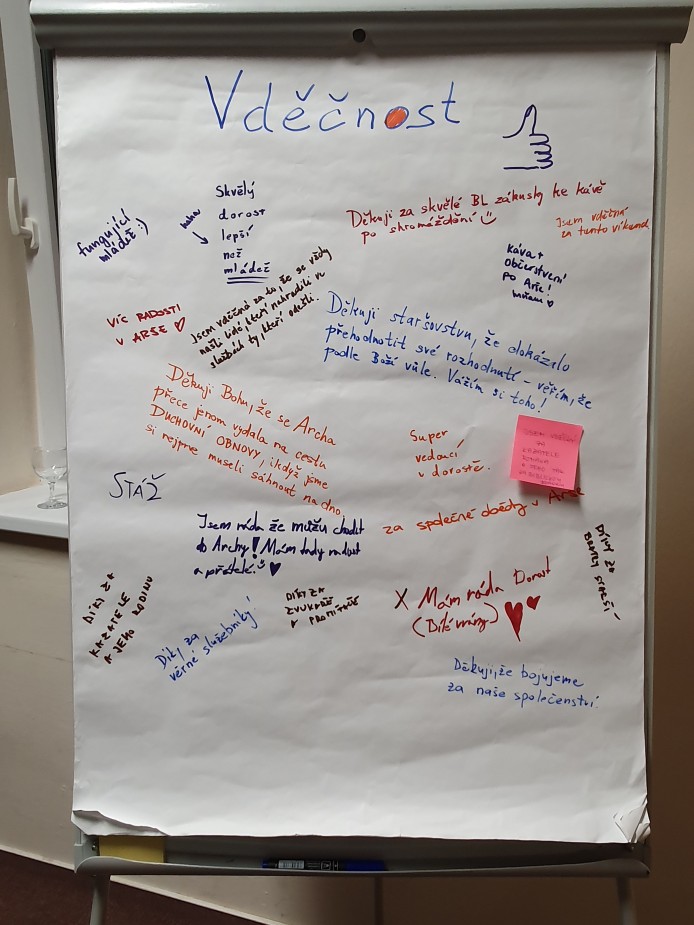 Vděčnost
fungující
mládež :)
haha
Skvělý
dorost
lepší
než
mládež
Děkuji za skvělé BL zákusky ke kávě
po shromáždění
Jsem vděčná
za tento víkend
káva +
občerstvení
po Arše!
mňam
VÍC RADOSTI
V ARŠE
Jsem vděčná za to, že se vždy
našli lidé, kteří nahradili ve
službách ty, kteří odešli.
Děkuji staršovstvu, že dokázalo
přehodnotit své rozhodnutí - věřím, že
podle Boží vůle. Vážím si toho!
Děkuji Bohu, že se Archa
přece jenom vydala na cestu
DUCHOVNÍ OBNOVY, i když jsme
si nejprve museli sáhnout na dno.
Super
vedoucí
v dorostě.
ZA
KAZATELE
STÁŽ
za společné obědy v Arše
Jsem ráda že můžu chodit
do Archy! Mám tady radost
a přátele.
DÍKY ZA
BRATRY STARŠÍ
DÍKY ZA
KAZATELE
A JEHO RODINU
Díky za
věrné služebníky!
DÍKY ZA
ZVUKAŘE
A PROMÍTAČE
X Mám ráda Dorost
(Bílé vrány)
Děkuji, že bojujeme
za naše společenství.